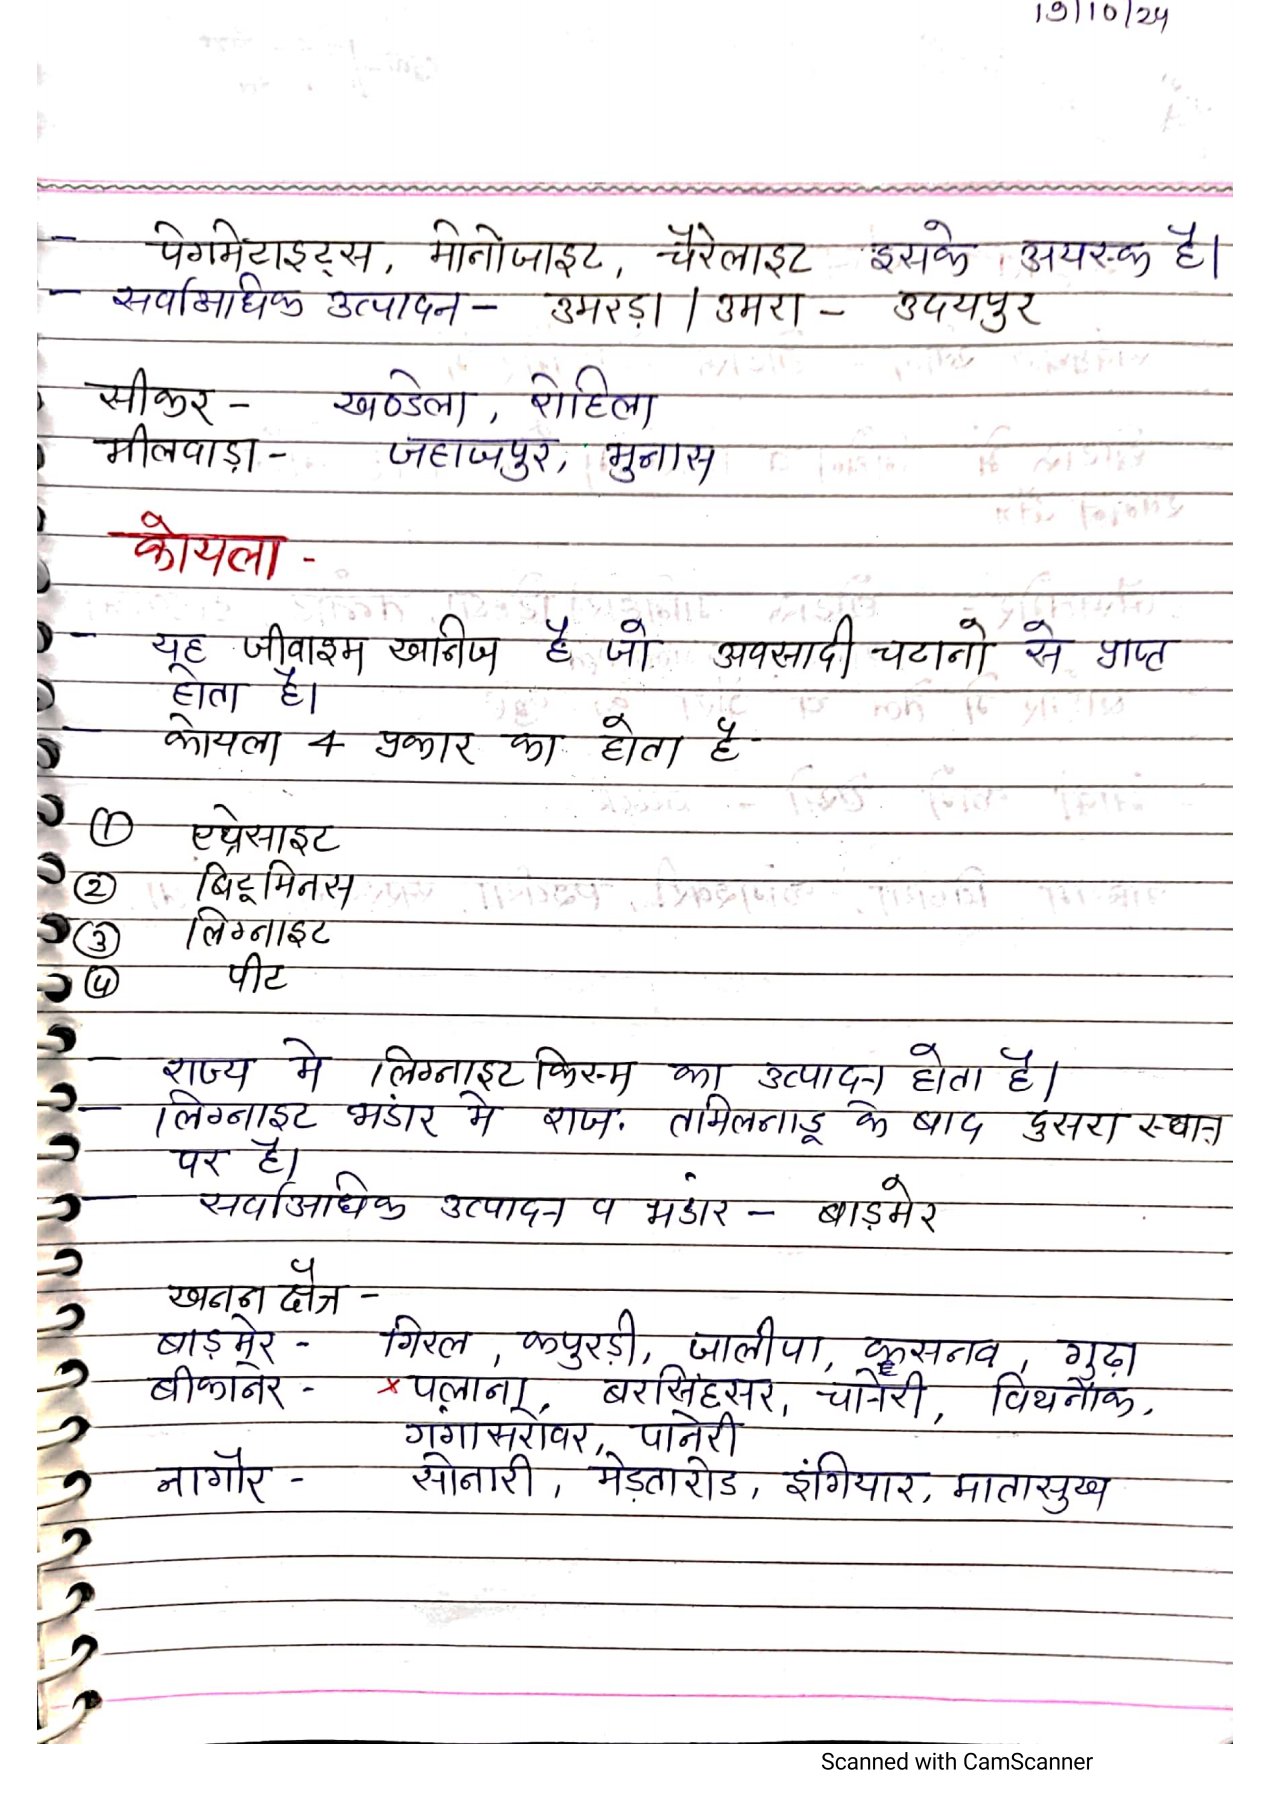 19/10/24
- पेगमेटाइट्स, मोनोजाइट, चैरेलाइट इसके अयस्क है।
- सर्वाआधिक उत्पादन - उमरड़ा / उमरा - उदयपुर
सीकर - खण्डेला, रोहिला
भीलवाड़ा - जहाजपुर, भुनास
कोयला -
- यह जीवाश्म खनिज है जो अवसादी चटानो से प्राप्त
होता है।
- कोयला 4 प्रकार का होता है -
① एथ्रेसाइट
② बिटूमिनस
③ लिग्नाइट
④ पीट
- राज्य मे लिग्नाइट किस्म का उत्पादन होता है।
- लिग्नाइट भंडार मे राज. तमिलनाडू के बाद दुसरा स्थान
पर है।
- सर्वाआधिक उत्पादन व भंडार - बाड़मेर
खनन क्षैत्र -
बाड़मेर - गिरल, कपुरड़ी, जालीपा, कुसनव, गुढ़ा
बीकानेर - × पलाना, बरसिंहसर, चानेरी, विथनोक,
गंगासरोवर, पानेरी
नागौर - सोनारी, मेड़तारोड, इंगियार, मातासुख
Scanned with CamScanner